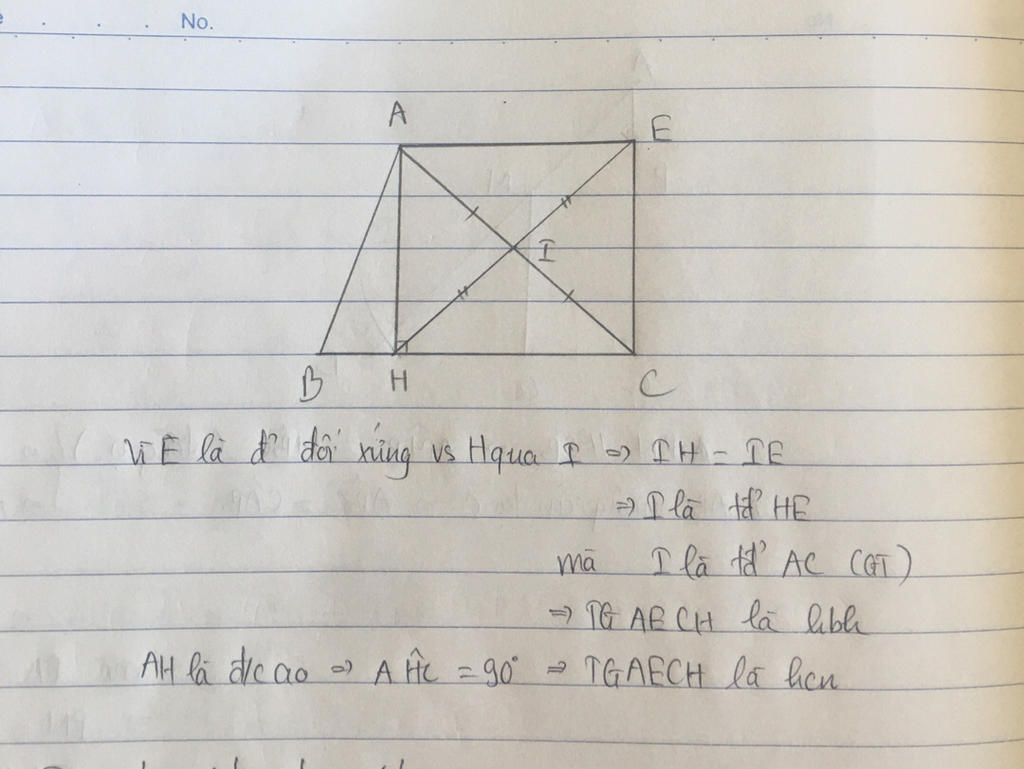 No.
A
E
I
B H C
Vì E là đ' đối xứng vs H qua I ⇒ IH = IE
⇒ I là tđ' HE
mà I là tđ' AC (GT)
⇒ TG AECH là hbh
AH là đ/c ao ⇒ AĤC = 90° ⇒ TGAECH là hcn